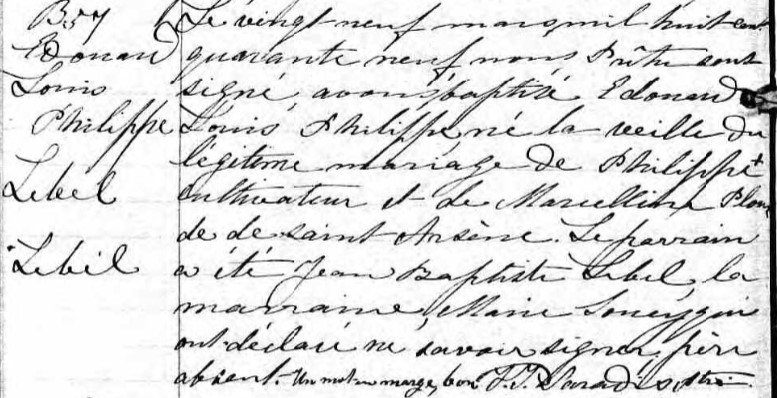 B57
Edouard
Louis
Philippe
Lebel
Lebel
Le vingt neuf mars mil huit cent
quarante neuf nous Prêtre sous
signé avons baptisé Edouard
Louis Philippe né la veille du
légitime mariage de Philippe +
cultivateur et de Marcelline Plour
de de Saint Arsène. Le parrain
a été Jean Baptiste Lebel, la
marraine, Marie Soucy qui
ont déclaré ne savoir signer, père
absent. Un mot en marge, bon J.I. Paradis Ptre.